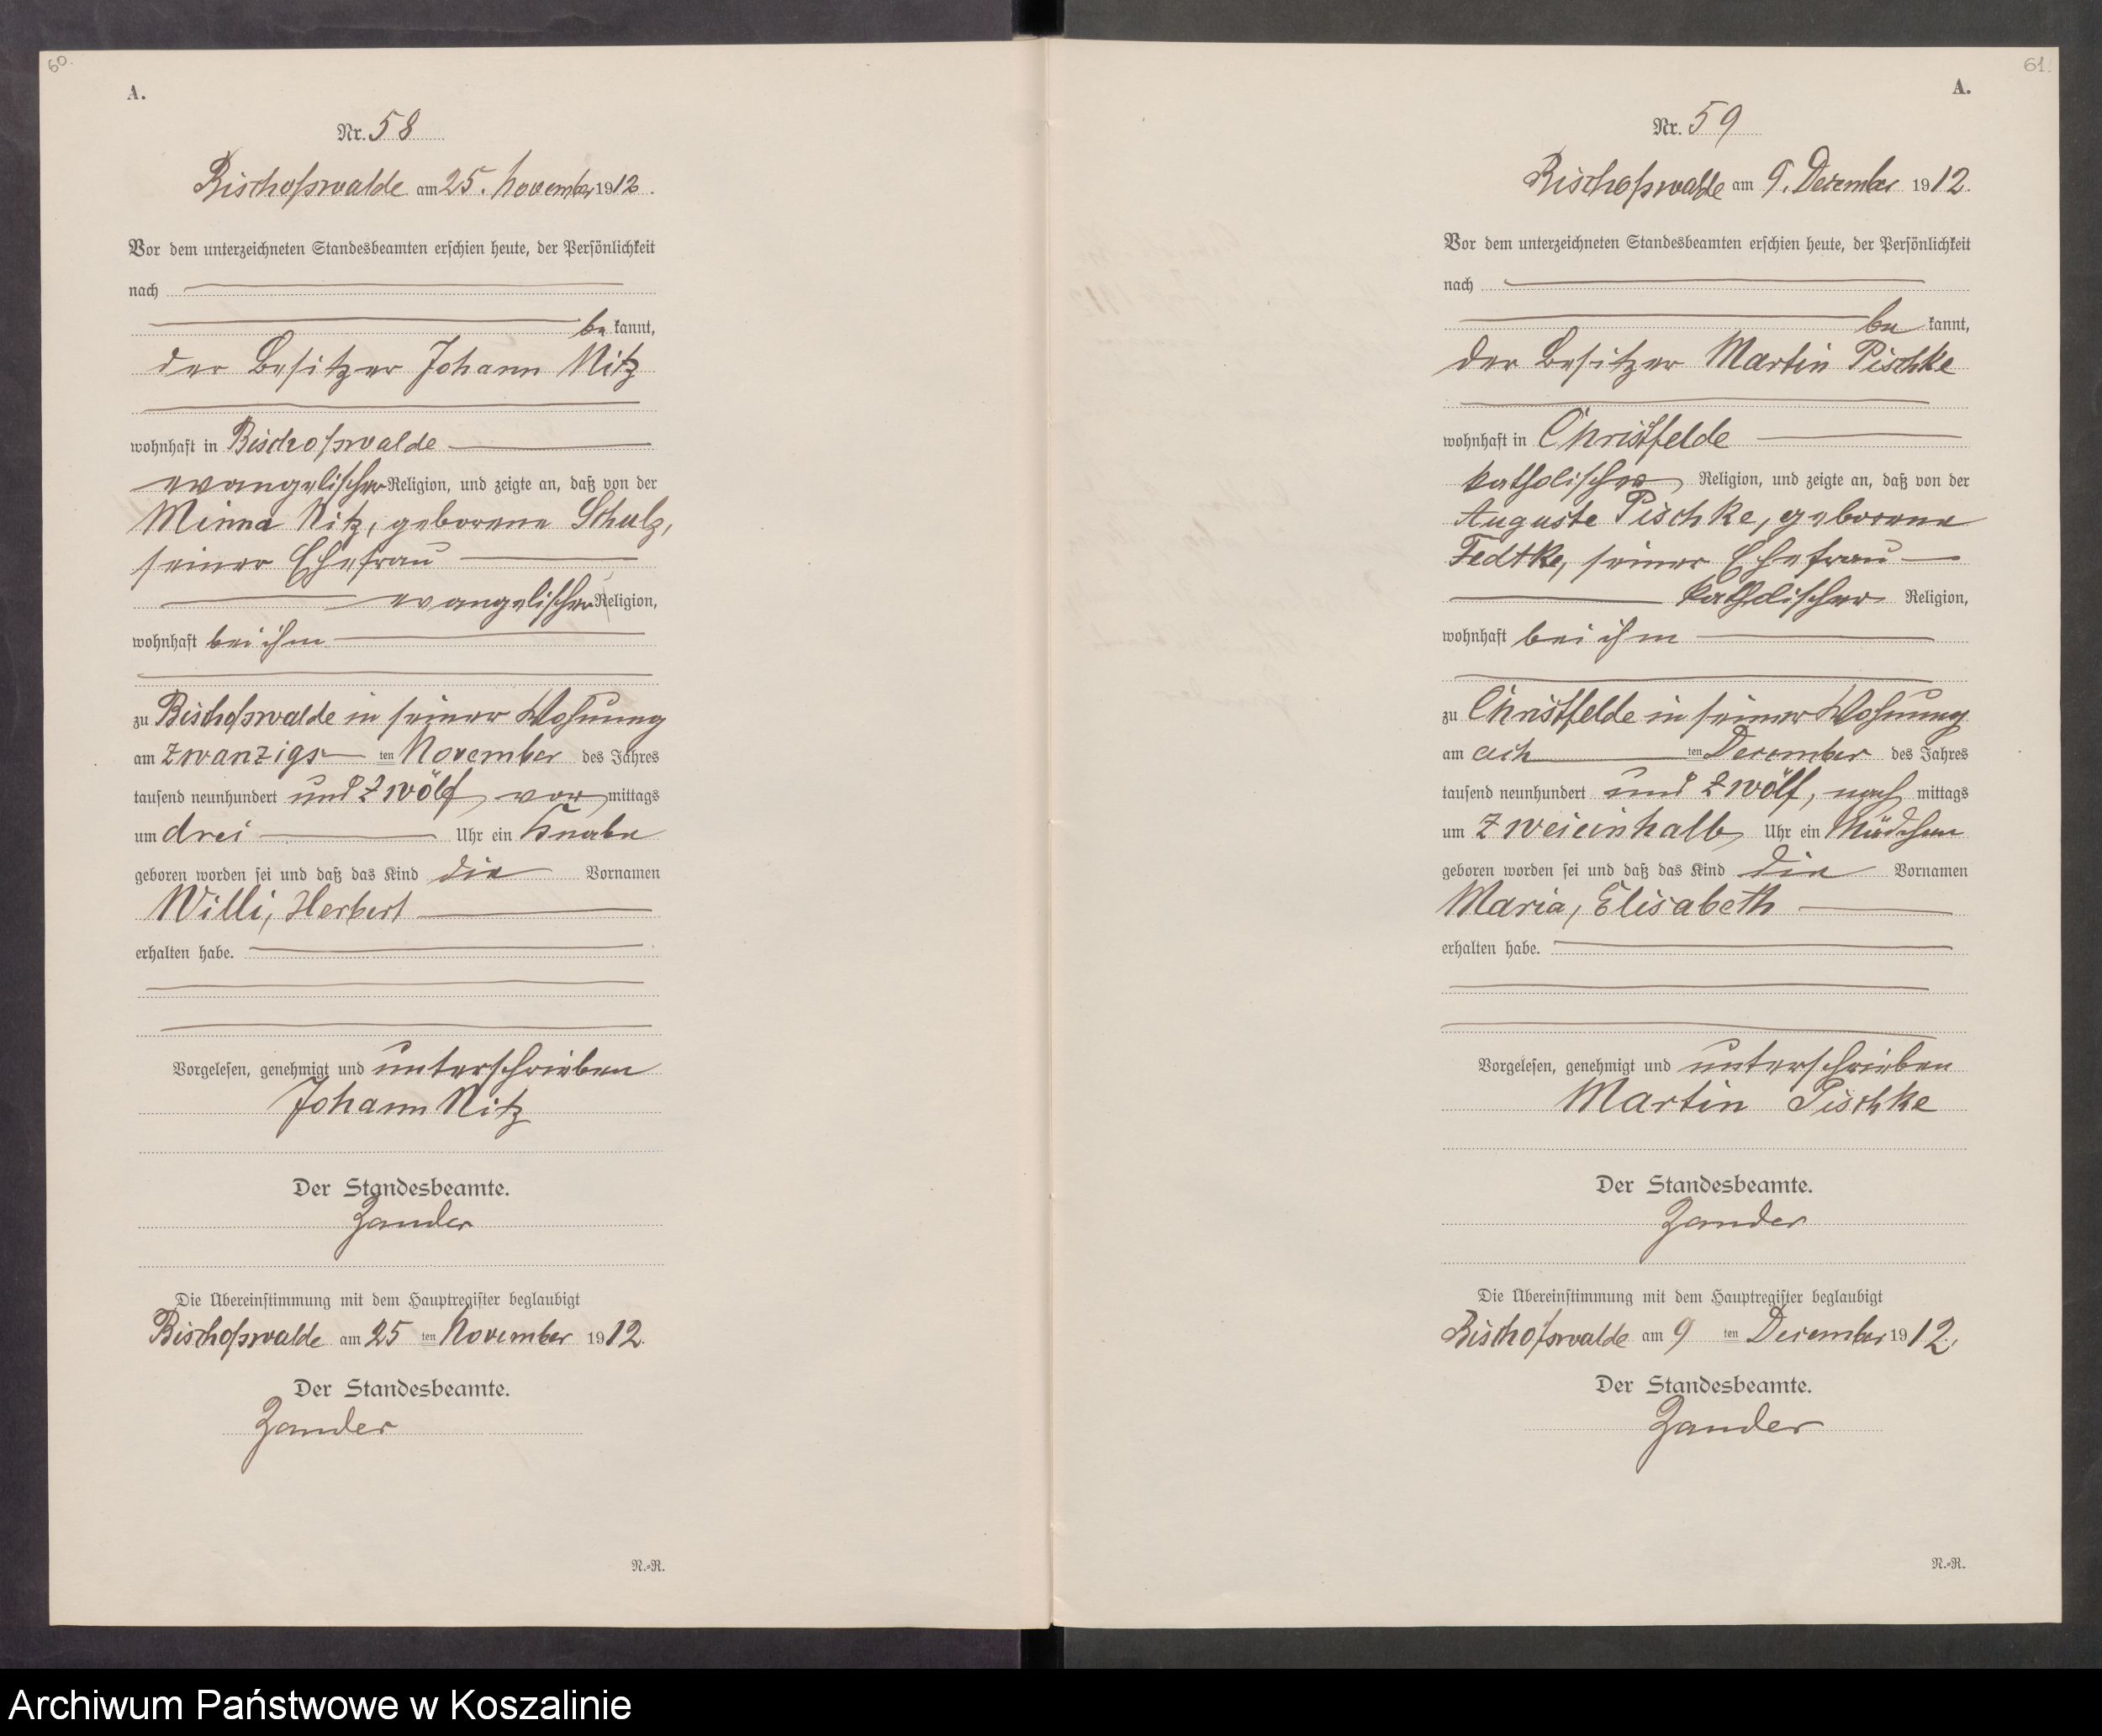 60.
A.
Nr. 58
Bischofswalde am 25. November 1912.
Vor dem unterzeichneten Standesbeamten erschien heute, der Persönlichkeit
nach
be kannt,
der Besitzer Johann Nitz
wohnhaft in Bischofswalde
evangelischer Religion, und zeigte an, daß von der
Minna Nitz, geborene Schulz,
seiner Ehefrau
evangelischer Religion,
wohnhaft bei ihm
zu Bischofswalde in seiner Wohnung
am zwanzigs ten November des Jahres
tausend neunhundert und zwölf, vor mittags
um drei Uhr ein Knabe
geboren worden sei und daß das Kind die Vornamen
Willi, Herbert
erhalten habe.
Vorgelesen, genehmigt und unterschrieben
Johann Nitz
Der Standesbeamte.
Zander
Die Übereinstimmung mit dem Hauptregister beglaubigt
Bischofswalde am 25 ten November 1912.
Der Standesbeamte.
Zander
N.-R.
61.
A.
Nr. 59
Bischofswalde am 9. Dezember 1912.
Vor dem unterzeichneten Standesbeamten erschien heute, der Persönlichkeit
nach
be kannt,
der Besitzer Martin Pischke
wohnhaft in Christfelde
katholischer Religion, und zeigte an, daß von der
Auguste Pischke, geborene
Fedtke, seiner Ehefrau
katholischer Religion,
wohnhaft bei ihm
zu Christfelde in seiner Wohnung
am ach ten Dezember des Jahres
tausend neunhundert und zwölf, nach mittags
um zweieinhalb Uhr ein Mädchen
geboren worden sei und daß das Kind die Vornamen
Maria, Elisabeth
erhalten habe.
Vorgelesen, genehmigt und unterschrieben
Martin Pischke
Der Standesbeamte.
Zander
Die Übereinstimmung mit dem Hauptregister beglaubigt
Bischofswalde am 9 ten Dezember 1912.
Der Standesbeamte.
Zander
N.-R.
Archiwum Państwowe w Koszalinie